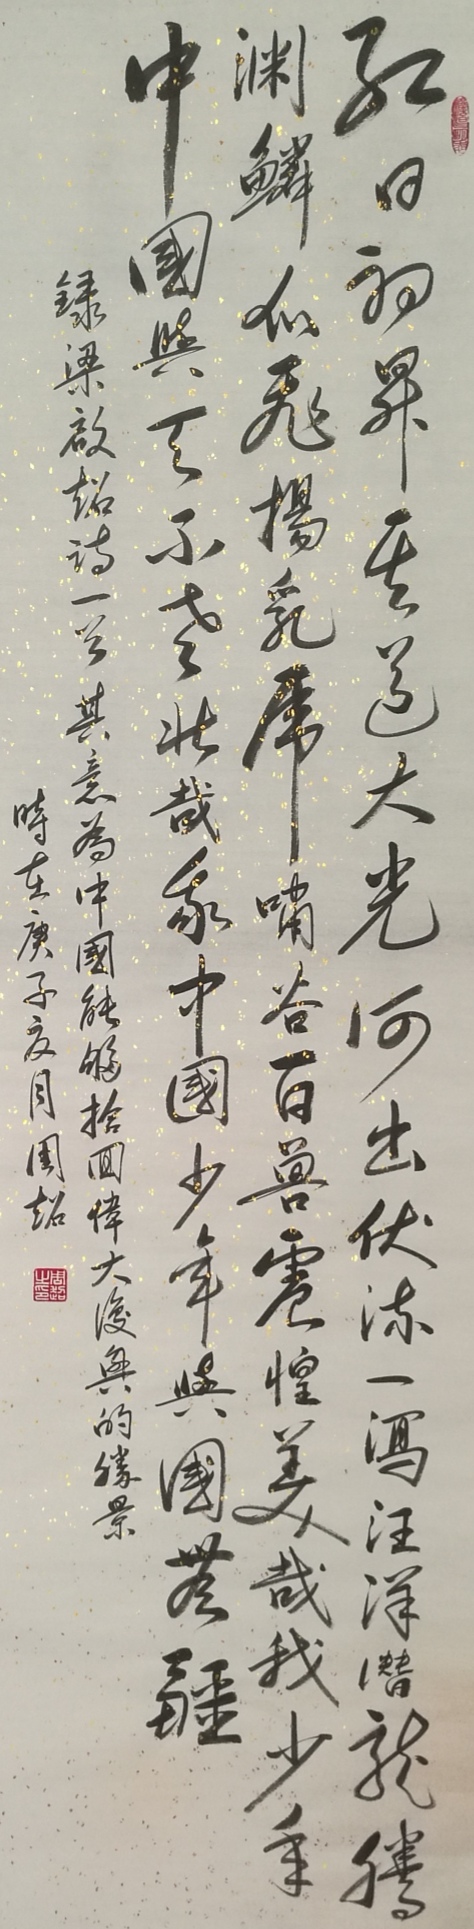 紅日初昇其道大光河出伏流一瀉汪洋潛龍騰
渊鱗爪飛揚乳虎嘯谷百兽震惶美哉我少年
中國與天不老壯哉我中国少年與國無疆
錄梁啟超詩一首其意為中國能夠拾回偉大復興的勝景
時在庚子夏月周超
周超之印